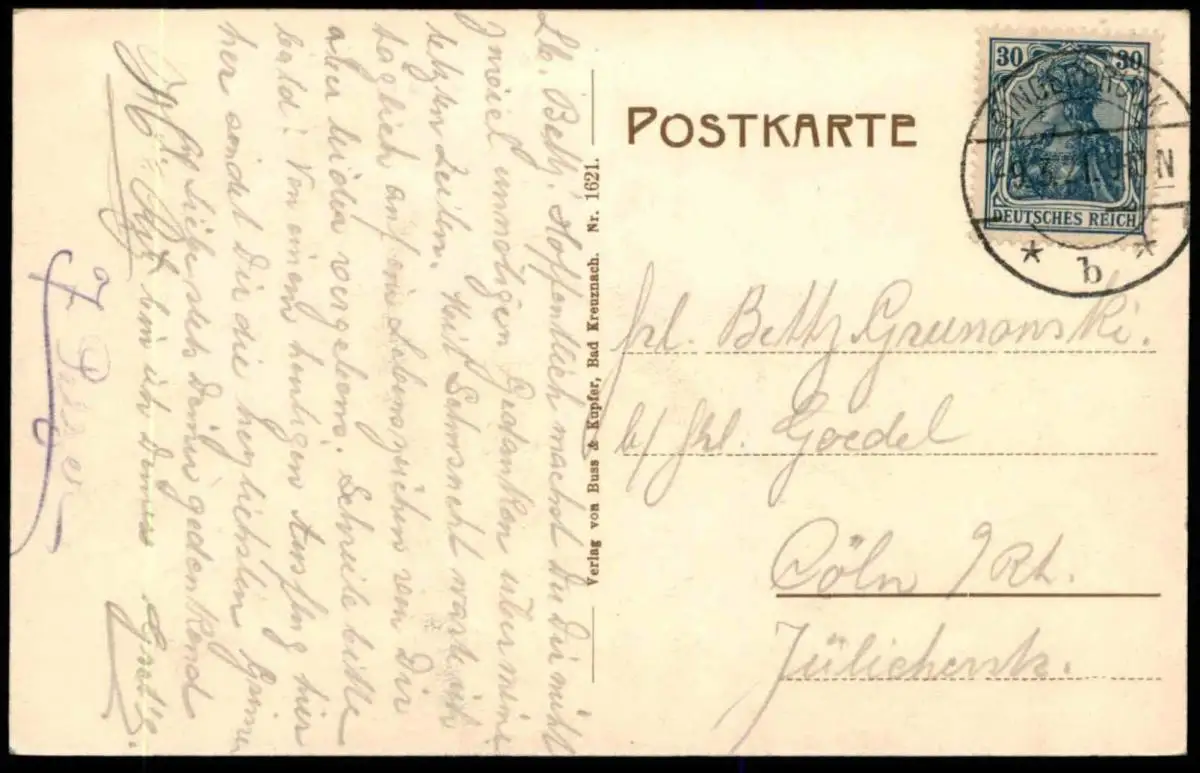 Lb. Betty! Hoffentlich machst Du Dir nicht
zuviel unnötigen Gedanken über meine
letzten Zeilen. Mit Sehnsucht warte ich
täglich auf ein Lebenszeichen von Dir
aber leider vergebens. Schreibe bitte
bald! Von einem heutigen Ausflug hier
her sendet Dir die herzlichsten Grüsse
stets Deiner gedenkend
bin ich Deine
POSTKARTE
Verlag von Buss & Kupfer, Bad Kreuznach. Nr. 1621.
30 30
DEUTSCHES REICH
BINGERBRÜCK
9.3.21. 9-10 N
* b *
Frl. Betty Grunowski.
b/ Frl. Goedel
Cöln a/Rh.
Jülicherstr.